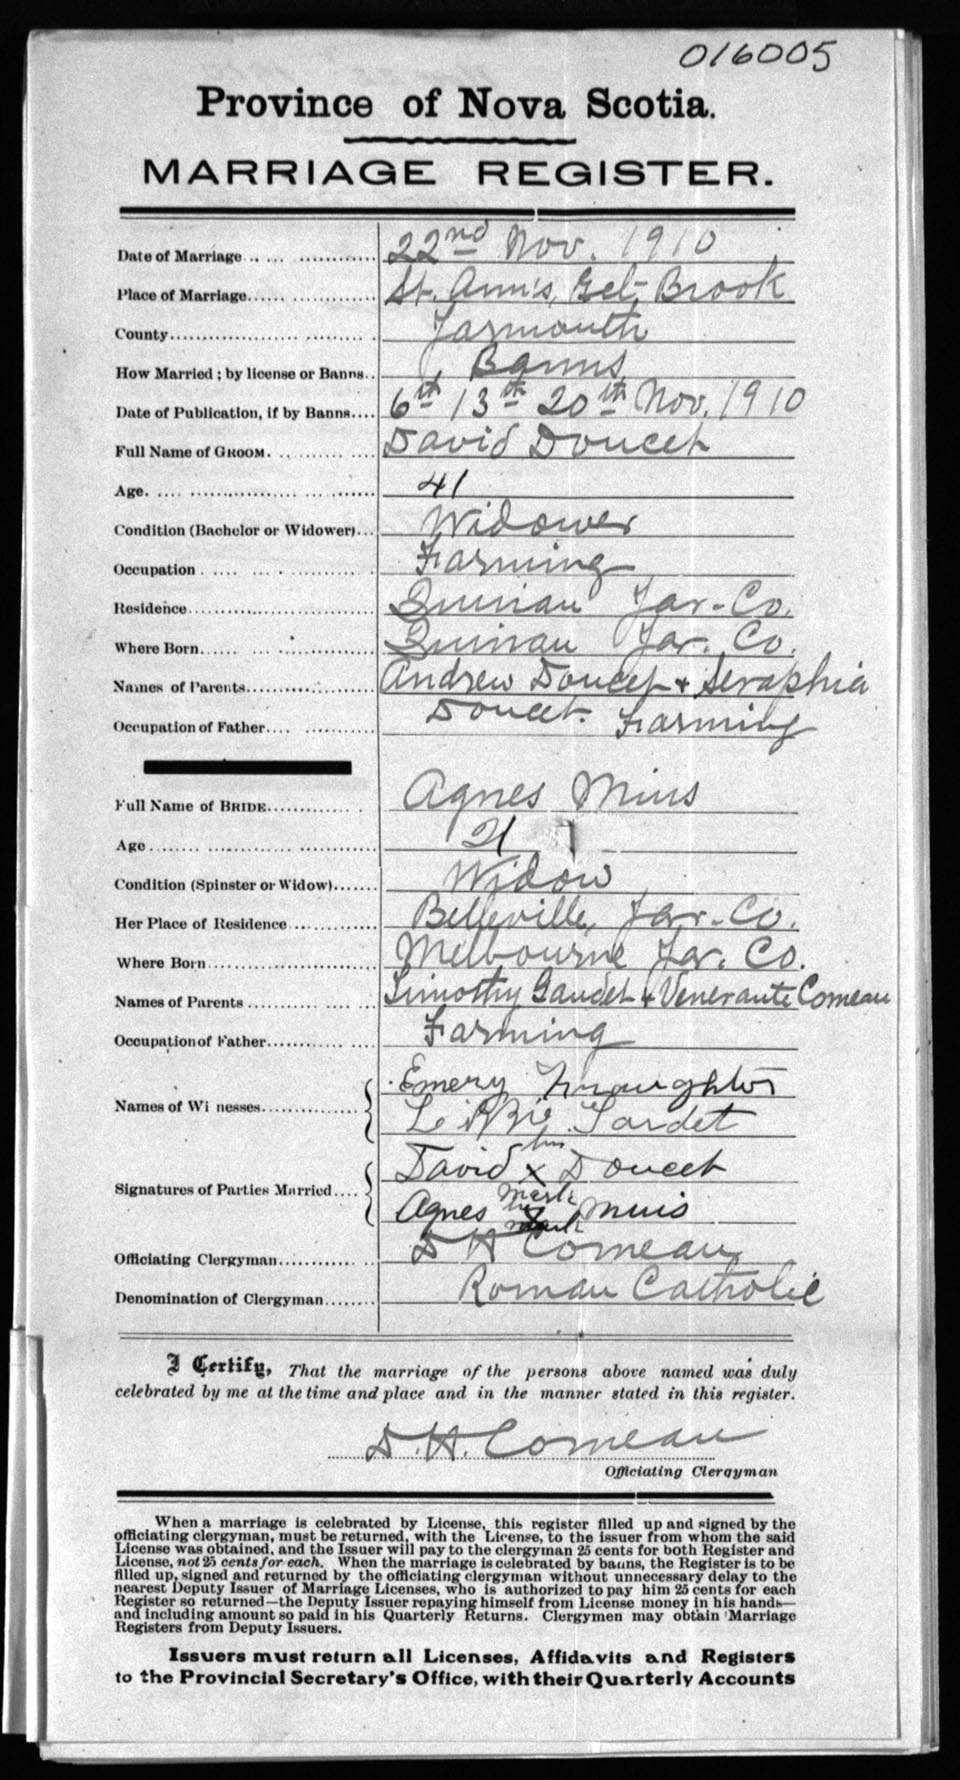 016005
Province of Nova Scotia.
MARRIAGE REGISTER.
Date of Marriage 22nd Nov. 1910
Place of Marriage St. Ann's, Eel Brook
County Yarmouth
How Married; by license or Banns Banns
Date of Publication, if by Banns 6th 13th 20th Nov. 1910
Full Name of GROOM. David Doucet
Age. 41
Condition (Bachelor or Widower) Widower
Occupation Farming
Residence Quinan Yar. Co.
Where Born Quinan Yar. Co.
Names of Parents Andrew Doucet + Seraphia
Occupation of Father Doucet. Farming
Full Name of BRIDE Agnes Mius
Age 21
Condition (Spinster or Widow) Widow
Her Place of Residence Belleville, Yar. Co.
Where Born Melbourne Yar. Co.
Names of Parents Timothy Gaudet + Venerante Comeau
Occupation of Father Farming
Names of Wi nesses Emery
David his x Doucet
Signatures of Parties Married mark
Agnes her x muis
mark
Officiating Clergyman D H Comeau
Denomination of Clergyman Roman Catholic
I Certify, That the marriage of the persons above named was duly
celebrated by me at the time and place and in the manner stated in this register.
D. H. Comeau
Officiating Clergyman
When a marriage is celebrated by License, this register filled up and signed by the
officiating clergyman, must be returned, with the License, to the issuer from whom the said
License was obtained, and the Issuer will pay to the clergyman 25 cents for both Register and
License, not 25 cents for each. When the marriage is celebrated by banns, the Register is to be
filled up, signed and returned by the officiating clergyman without unnecessary delay to the
nearest Deputy Issuer of Marriage Licenses, who is authorized to pay him 25 cents for each
Register so returned—the Deputy Issuer repaying himself from License money in his hands—
and including amount so paid in his Quarterly Returns. Clergymen may obtain Marriage
Registers from Deputy Issuers.
Issuers must return all Licenses, Affidavits and Registers
to the Provincial Secretary's Office, with their Quarterly Accounts